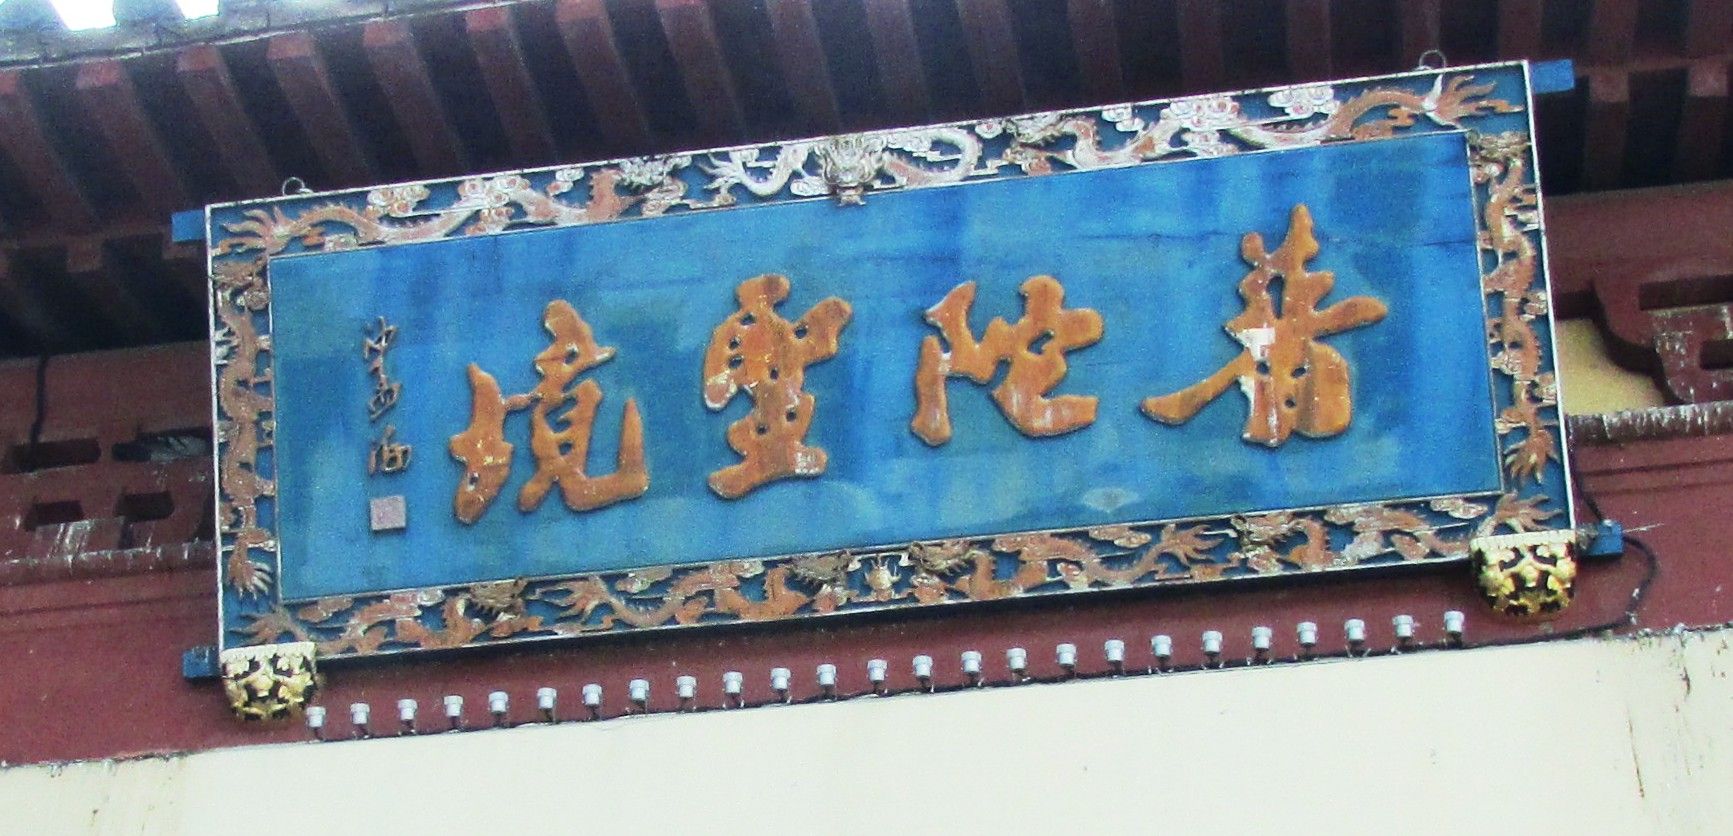 普陀聖境